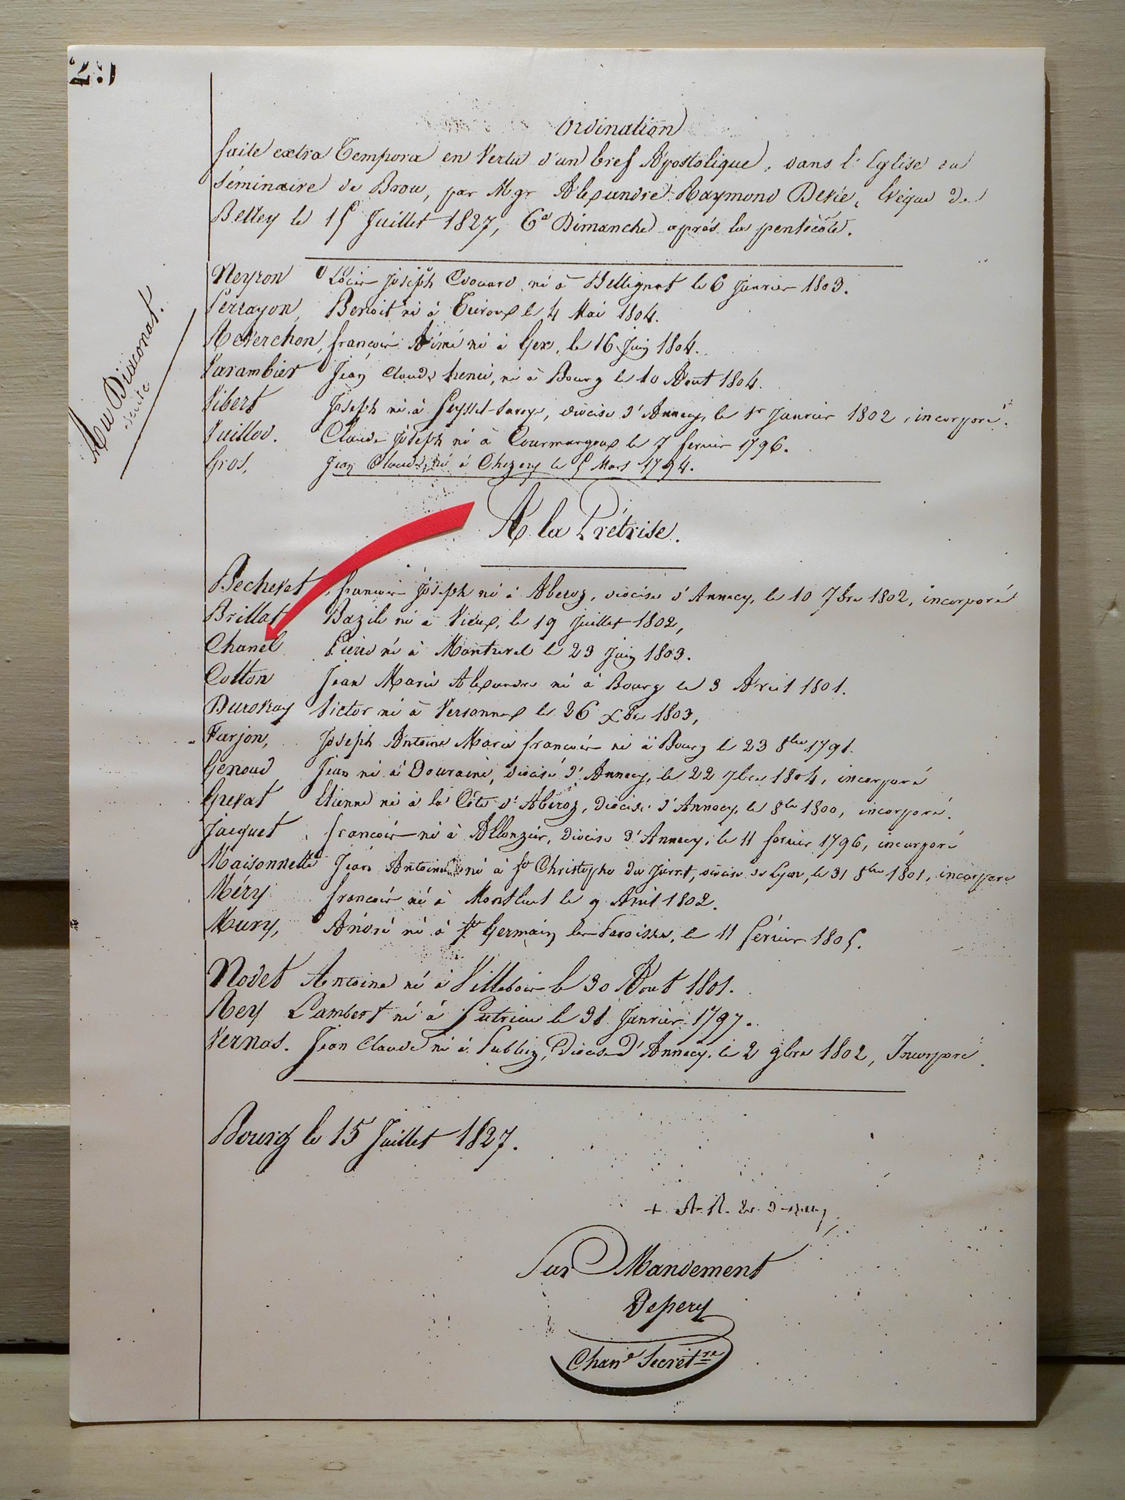 29
Ordination
faite extra Tempora en Vertu d'un bref Apostolique, dans l'Eglise du
Séminaire de Brou, par Mgr Alexandre Raymond Devie, Evêque de
Belley le 15 Juillet 1827, 6e Dimanche après la pentecôte.
Au Diaconat.
suite
Neyron Joseph Edouard né à Bellignat le 6 Janvier 1803.
Benoit né à le 4 Mai 1804.
françois Aimé né à Gex, le 16 Juin 1804.
Varambier Jean Claude né à Bourg le 10 Aout 1804.
Vibert Joseph né à Seyssel diocèse d'Annecy, le 1er Janvier 1802, incorporé.
Vuillod. Claude Joseph né à Courmangoux le 7 fevrier 1796.
Gros, Jean Claude, né à Chezery le 5 Mars 1794.
A la Prétrise.
françois Joseph né à diocèse d'Annecy, le 10 7bre 1802, incorporé
Brillat Bazile né à Vieux, le 19 Juillet 1802,
Chanel Pierre né à Montrevel le 23 Juin 1803.
Cotton Jean Marie Alexandre né à Bourg le 3 Avril 1801.
Victor né à le 26 Xbre 1803,
Farjon, Joseph Antoine Marie françois né à Bourg le 23 8bre 1791.
Genoud Jean né à diocèse d'Annecy, le 22 7bre 1804, incorporé
Etienne né à la Côte d'Abéroz, diocèse d'Annecy, le 8bre 1800, incorporé.
Jacquet françois né à Allonzier, diocèse d'Annecy, le 11 fevrier 1796, incorporé
Maisonnette Jean Antoine né à St Christophe du diocèse de Lyon, le 31 8bre 1801, incorporé
Méry françois né à Montluel le 9 Avril 1802.
Mury, André né à St Germain les Paroisses, le 11 février 1805.
Nodet Antoine né à Villebois le 30 Aout 1801.
Rey Lambert né à le 31 Janvier 1797.
Vernas. Jean Claude né à Publier, Diocèse d'Annecy, le 2 9bre 1802, Incorporé.
Bourg le 15 Juillet 1827.
+ A. R. Ev. de
Sur Mandement
Depery
Chane Secretre